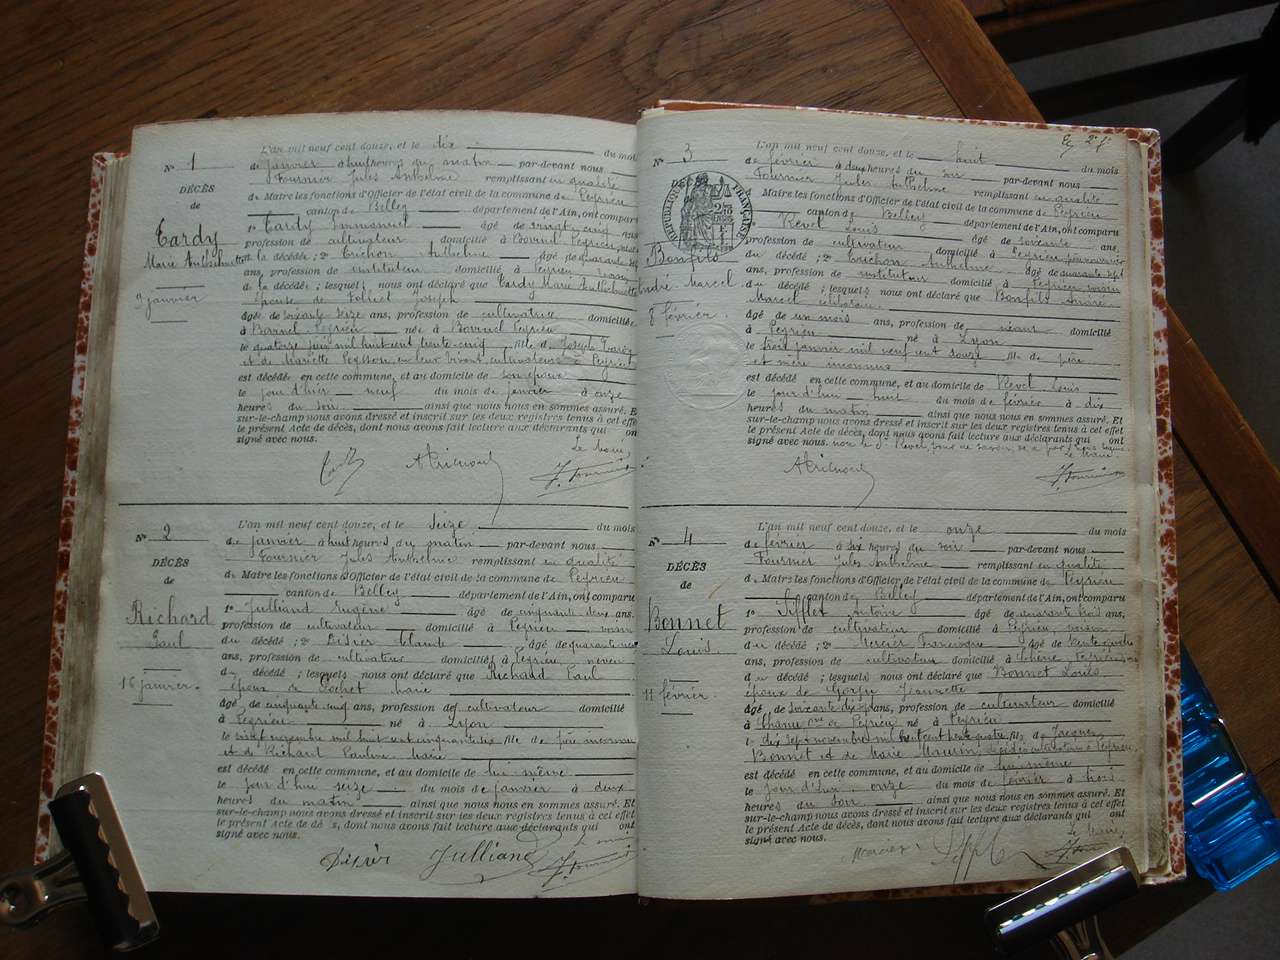 L'an mil neuf cent douze, et le dix du mois
N° 1 de janvier à huit heures du matin par-devant nous
Fournier Jules Anthelme remplissant en qualité
DÉCÈS de Maire les fonctions d'Officier de l'état civil de la commune de Peyrieu
de canton de Belley département de l'Ain, ont comparu
Tardy 1° Tardy Emmanuel âgé de vingt cinq ans,
profession de cultivateur domicilié à Peyrieu
Marie Anthelmette de la décédée; 2° Trichon Anthelme âgé de quarante sept
ans, profession de instituteur domicilié à Peyrieu voisin
9 janvier de la décédée; lesquels nous ont déclaré que Tardy Marie Anthelmette
épouse de Joseph
âgée de soixante seize ans, profession de cultivatrice domiciliée
à Peyrieu née à Peyrieu
le quatorze juin mil huit cent trente cinq, fille de Joseph Tardy
et de Mariette en leur vivant cultivateurs à Peyrieu
est décédée en cette commune, et au domicile de son époux
le jour d'hier neuf du mois de janvier à onze
heures du soir ainsi que nous nous en sommes assuré. Et
sur-le-champ nous avons dressé et inscrit sur les deux registres tenus à cet effet
le présent Acte de décès, dont nous avons fait lecture aux déclarants qui ont
signé avec nous.
Le Maire,
Tardy A Trichon J. Fournier
L'an mil neuf cent douze, et le seize du mois
N° 2 de janvier à huit heures du matin par-devant nous
Fournier Jules Anthelme remplissant en qualité
DÉCÈS de Maire les fonctions d'Officier de l'état civil de la commune de Peyrieu
de canton de Belley département de l'Ain, ont comparu
Richard 1° Julliand Eugène âgé de cinquante deux ans,
profession de cultivateur domicilié à Peyrieu voisin
Paul du décédé; 2° Claude âgé de quarante
ans, profession de cultivateur domicilié à Peyrieu neveu
du décédé; lesquels nous ont déclaré que Richard Paul
16 janvier. époux de Marie
âgé de cinquante cinq ans, profession de cultivateur domicilié
à Peyrieu né à Lyon
le vingt novembre mil huit cent cinquante six fils de père inconnu
et de Richard Pauline
est décédé en cette commune, et au domicile de lui même
le jour d'hui seize du mois de janvier à deux
heures du matin ainsi que nous nous en sommes assuré. Et
sur-le-champ nous avons dressé et inscrit sur les deux registres tenus à cet effet
le présent Acte de décès, dont nous avons fait lecture aux déclarants qui ont
signé avec nous.
Le Maire
Julliand J. Fournier
L'an mil neuf cent douze, et le huit du mois
N° 3 de février à deux heures du soir par-devant nous
Fournier Jules Anthelme remplissant en qualité
RÉPUBLIQUE FRANÇAISE
de Maire les fonctions d'Officier de l'état civil de la commune de Peyrieu
canton de Belley département de l'Ain, ont comparu
Revel Louis âgé de soixante ans,
profession de cultivateur domicilié à Peyrieu
Bonfils du décédé; 2° Trichon Anthelme âgé de quarante sept
ans, profession de instituteur domicilié à Peyrieu voisin
André Marcel. du décédé; lesquels nous ont déclaré que Bonfils André
Marcel célibataire
8 février. âgé de un mois ans, profession de néant domicilié
à Peyrieu né à Lyon
le trois janvier mil neuf cent douze fils de père
et mère inconnus
est décédé en cette commune, et au domicile de Revel Louis
le jour d'hui huit du mois de février à dix
heures du matin ainsi que nous nous en sommes assuré. Et
sur-le-champ nous avons dressé et inscrit sur les deux registres tenus à cet effet
le présent Acte de décès, dont nous avons fait lecture aux déclarants qui ont
signé avec nous.
Le Maire
A Trichon J. Fournier
L'an mil neuf cent douze, et le onze du mois
N° 4 de février à six heures du soir par-devant nous
Fournier Jules Anthelme remplissant en qualité
DÉCÈS de Maire les fonctions d'Officier de l'état civil de la commune de Peyrieu
de canton de Belley département de l'Ain, ont comparu
Bonnet 1° Antoine âgé de quarante trois ans,
profession de cultivateur domicilié à Peyrieu voisin
Louis. du décédé; 2° Mercier âgé de
ans, profession de cultivateur domicilié à
du décédé; lesquels nous ont déclaré que Bonnet Louis
11 février. époux de Jeannette
âgé de soixante dix ans, profession de cultivateur domicilié
à de Peyrieu né à Peyrieu
le dix sept novembre mil huit cent quatre fils de Jacques
Bonnet et de Marie
est décédé en cette commune, et au domicile de lui même
le jour d'hui onze du mois de février à trois
heures du soir ainsi que nous nous en sommes assuré. Et
sur-le-champ nous avons dressé et inscrit sur les deux registres tenus à cet effet
le présent Acte de décès, dont nous avons fait lecture aux déclarants qui ont
signé avec nous.
Le Maire,
Mercier J. Fournier